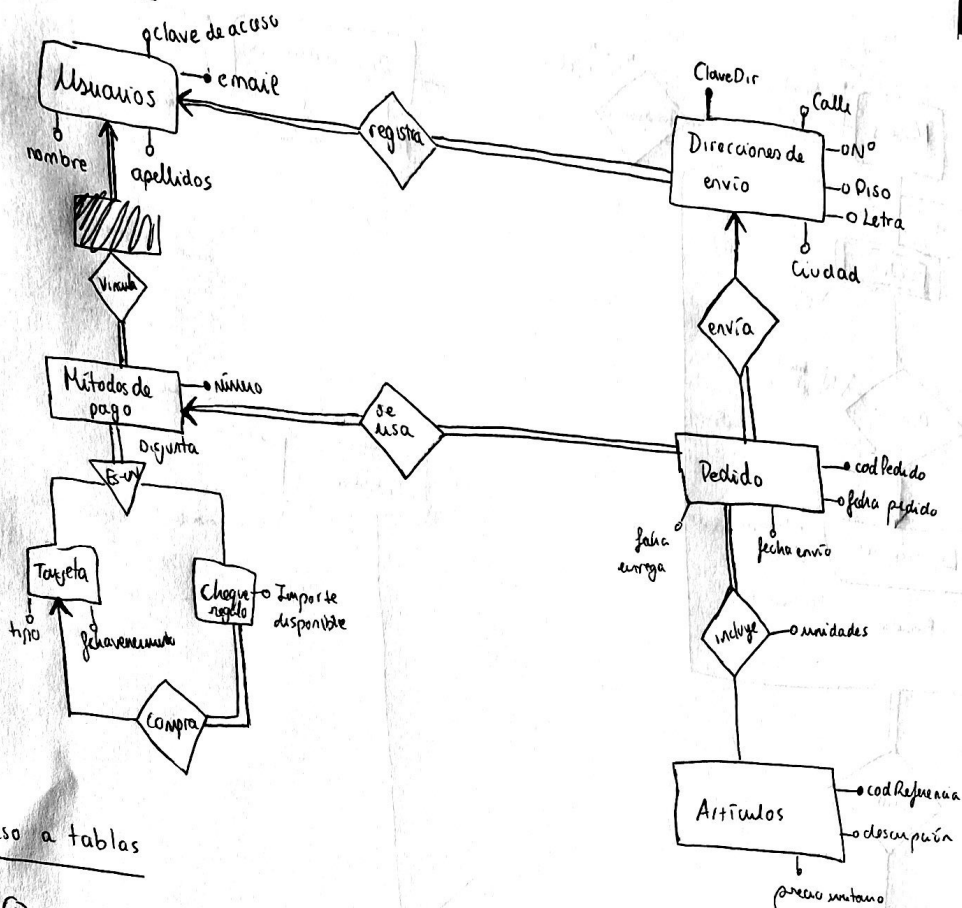 clave de acceso
Usuarios
email
nombre
apellidos
registra
ClaveDir
Calle
Direcciones de
envío
Nº
Piso
Letra
Ciudad
Vincula
envía
Métodos de
pago
número
Disjunta
se
usa
Es-un
Pedido
codPedido
fecha pedido
fecha
entrega
fecha envío
Tarjeta
tipo
fechavencimiento
Cheque
regalo
Importe
disponible
incluye
unidades
compra
Artículos
codReferencia
descripción
precio unitario
so a tablas